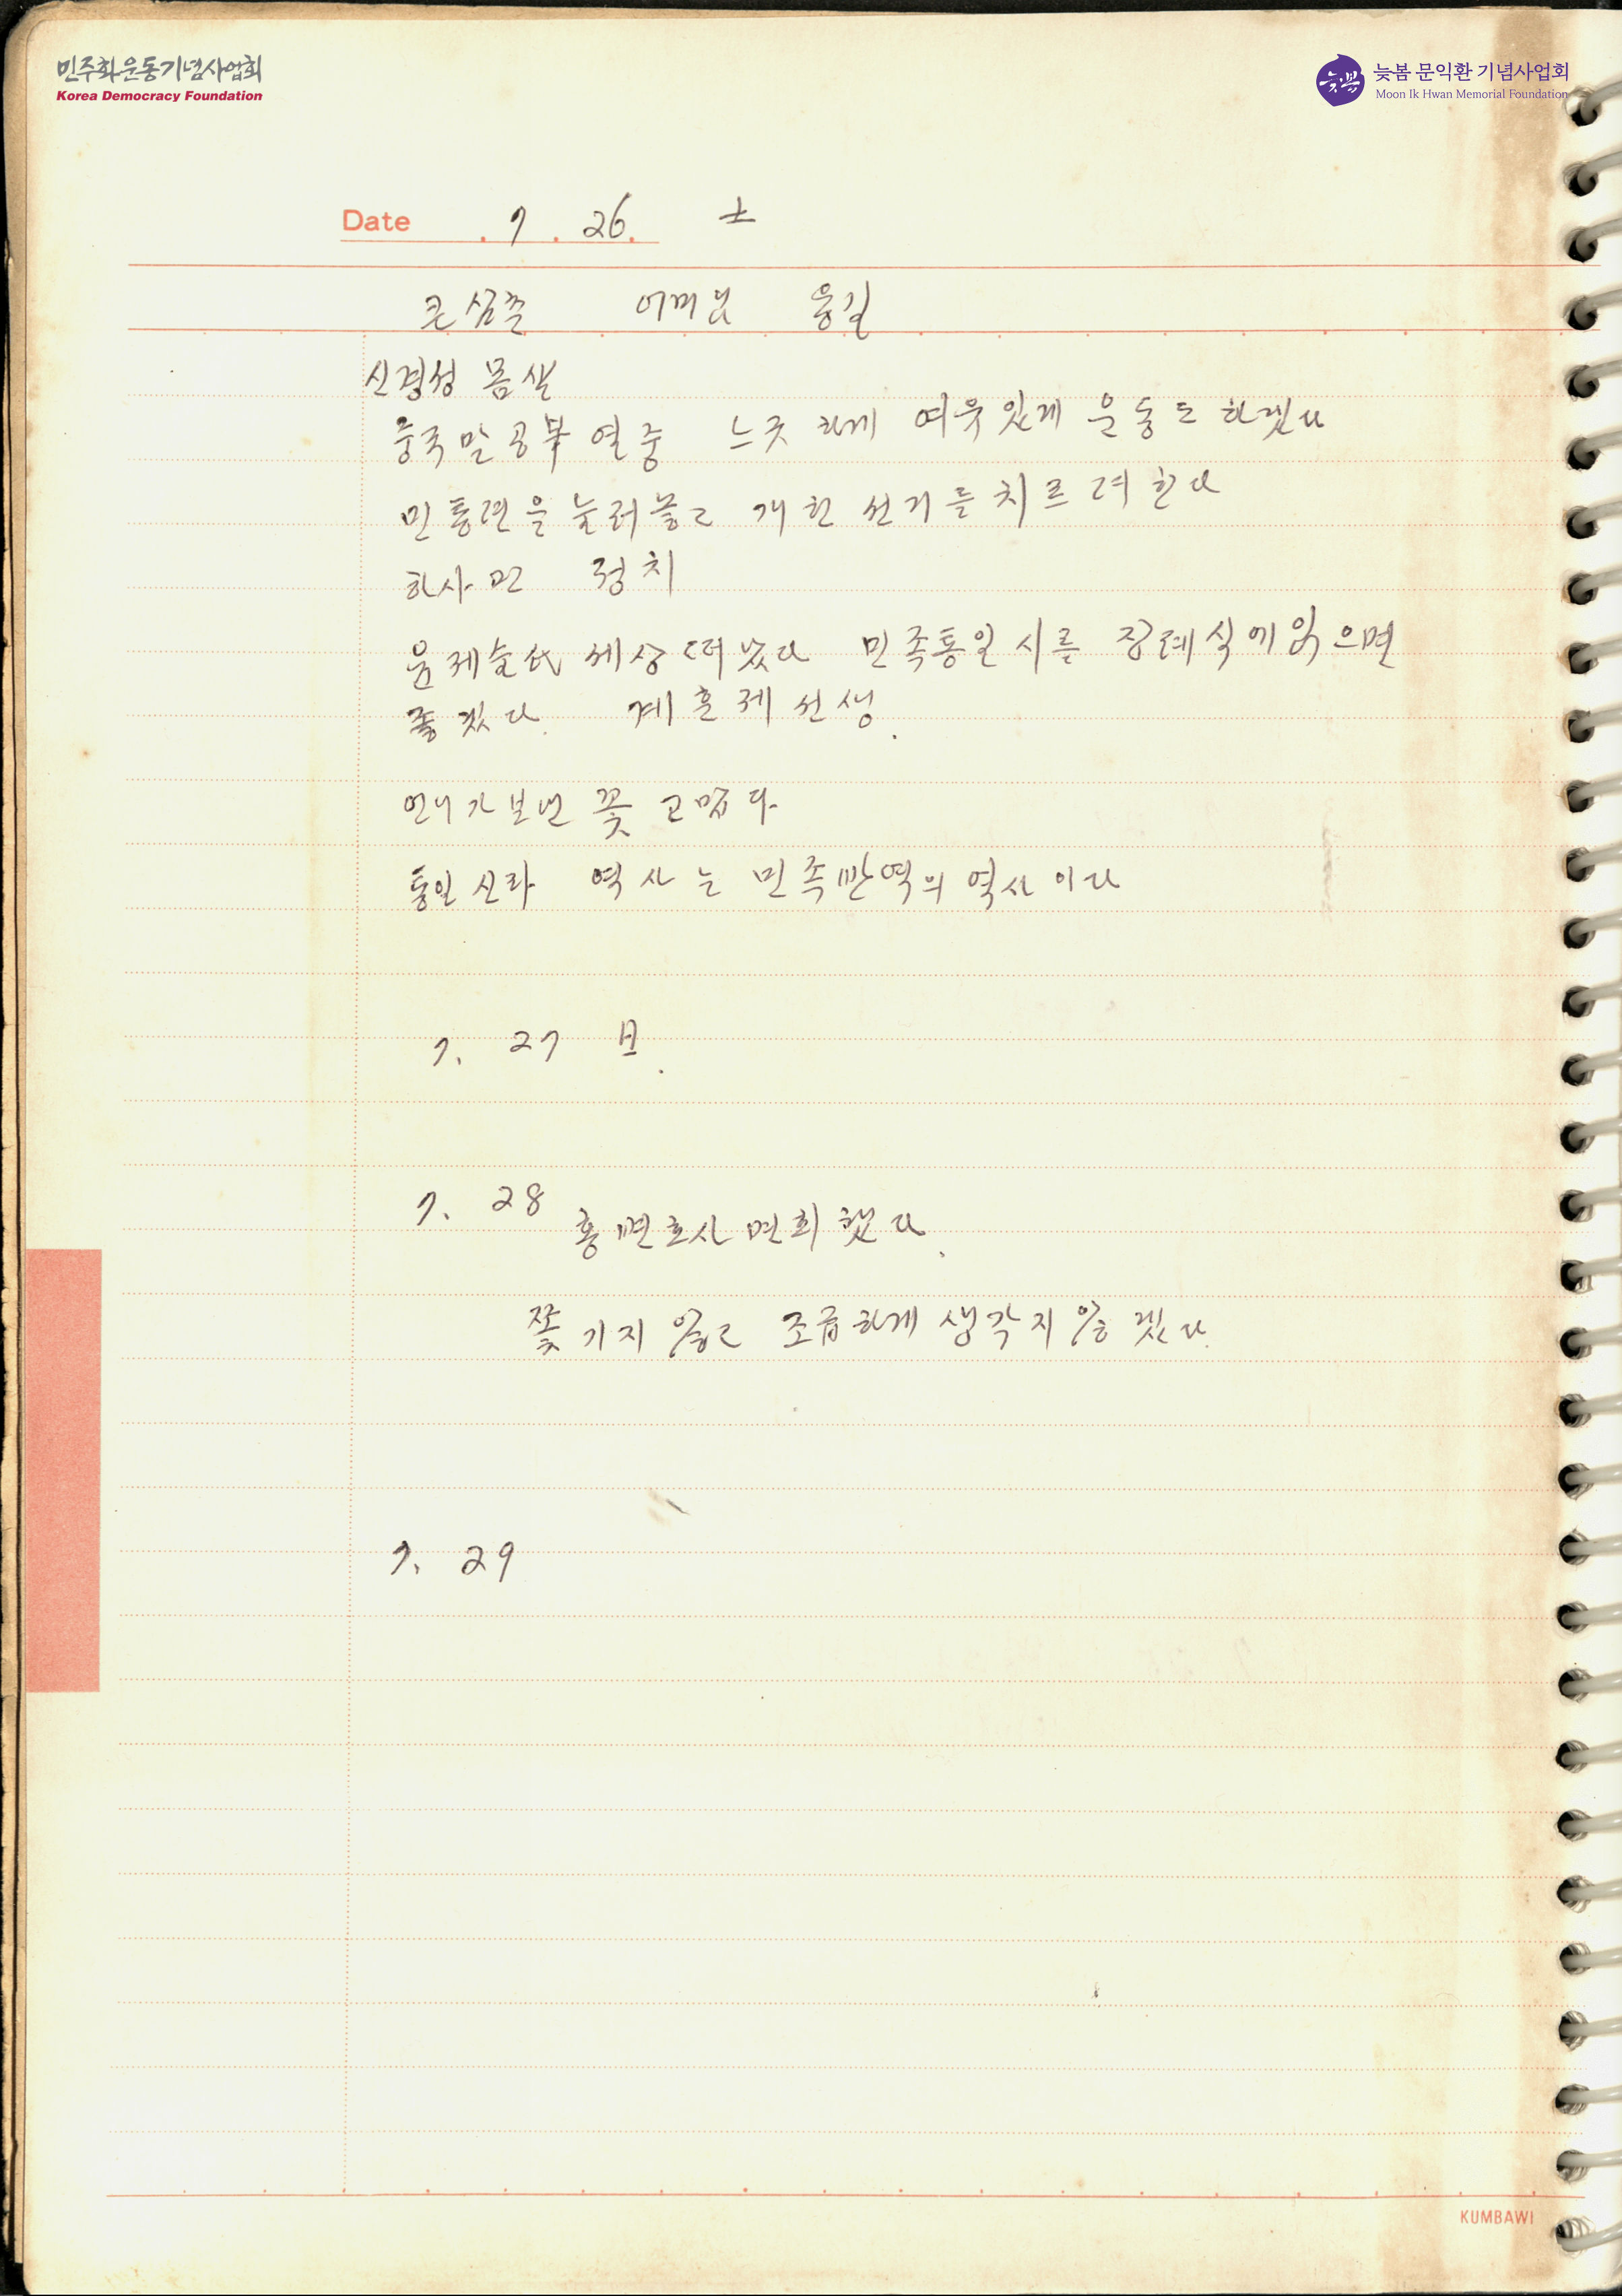 민주화운동기념사업회
Korea Democracy Foundation
늦봄 문익환 기념사업회
Moon Ik Hwan Memorial Foundation
Date . 7 . 26. 土
큰 삼촌 어머님 웅길
신경성 몸살
중국말 공부 열중 느긋하게 여유있게 운동도 하겠다
민통련을 눌러놓고 개헌 선거를 치르려 한다
하사 면 정치
윤제술氏 세상 떠났다 민족통일 시를 장례식에 읽으면
좋겠다. 계훈제 선생.
언니가 보낸 꽃 고맙다
통일 신라 역사는 민족반역의 역사이다
7. 27 日.
7. 28
홍변호사 면회했다.
쫓기지 않고 조급하게 생각지 않겠다.
7. 29
KUMBAWI